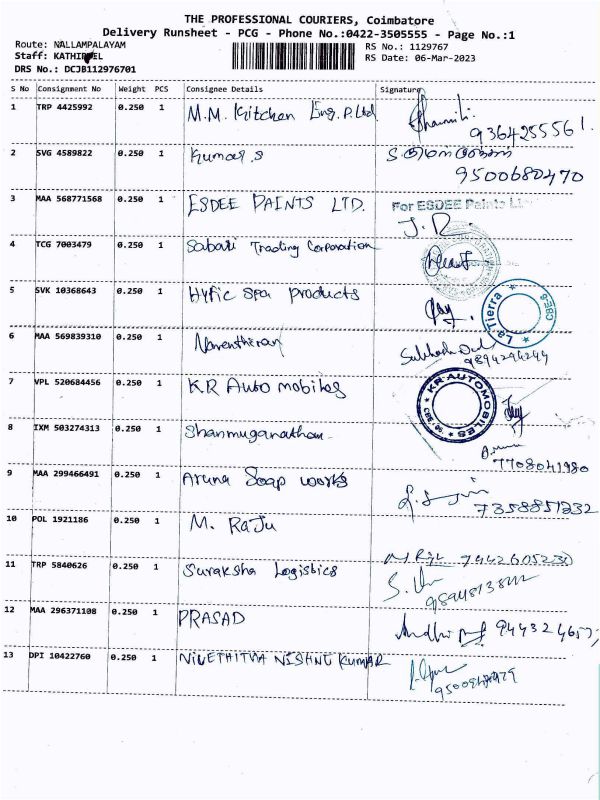 THE PROFESSIONAL COURIERS, Coimbatore
Delivery Runsheet - PCG - Phone No.:0422-3505555 - Page No.:1
Route: NALLAMPALAYAM
RS No.: 1129767
Staff: KATHIRVEL
RS Date: 06-Mar-2023
DRS No.: DCJB112976701
S No Consignment No Weight PCS Consignee Details Signature
1 TRP 4425992 0.250 1 M.M. Kitchen Eng. P. Ltd 9364255561.
2 SVG 4589822 0.250 1 Kumar S 9500680470
3 MAA 568771568 0.250 1 ESDEE PAINTS LTD. For ESDEE Paints
J.R.
4 TCG 7003479 0.250 1 Sabari Trading Corporation
5 SVK 10368643 0.250 1 Hyfic Spa products La Tierra CBE-6
6 MAA 569839310 0.250 1 Narenthiran
9894294244
7 VPL 520684456 0.250 1 K.R Auto mobiles KR AUTOMOBILES
8 IXM 503274313 0.250 1 Shanmuganathan
7708041980
9 MAA 299466491 0.250 1 Aruna Soap works 7358851232
10 POL 1921186 0.250 1 M. Raju
11 TRP 5840626 0.250 1 Suraksha Logistics
12 MAA 296371108 0.250 1 PRASAD
13 DPI 10422760 0.250 1 NIVETHITHA NISHNU KUMAR